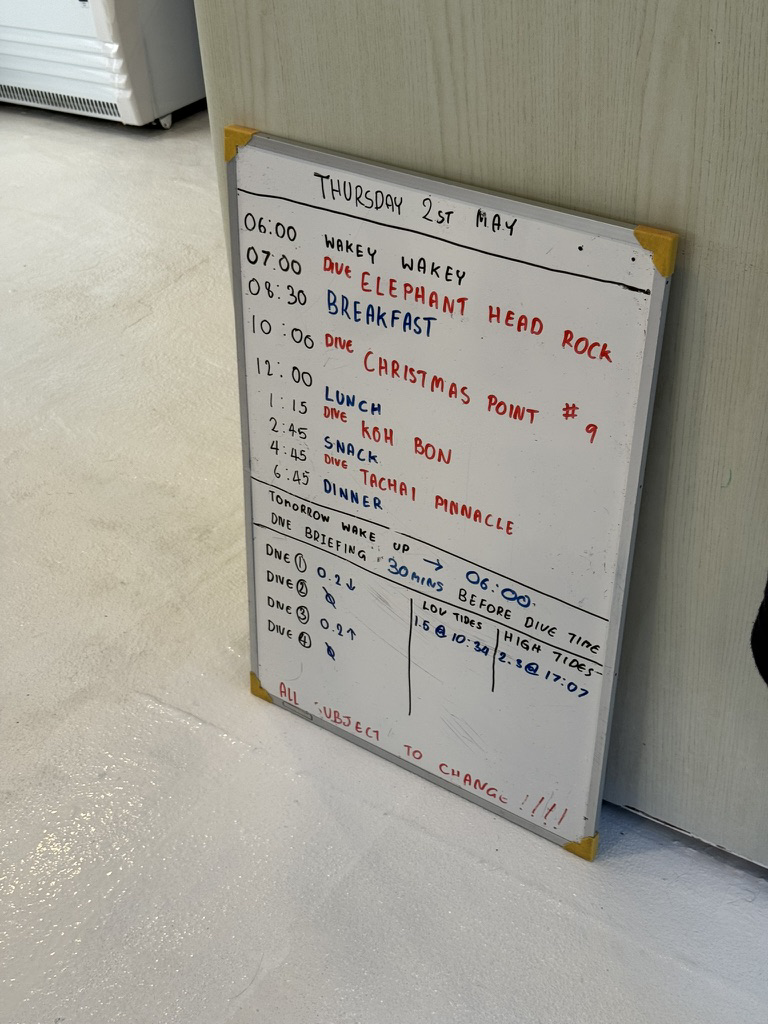 THURSDAY 2ST MAY
06:00 WAKEY WAKEY
07:00 DIVE ELEPHANT HEAD ROCK
08:30 BREAKFAST
10:00 DIVE CHRISTMAS POINT #9
12:00 LUNCH
1:15 DIVE KOH BON
2:45 SNACK
4:45 DIVE TACHAI PINNACLE
6:45 DINNER
TOMORROW WAKE UP → 06:00
DIVE BRIEFING 30MINS BEFORE DIVE TIME
DIVE ① 0.2↓
DIVE ②
DIVE ③ 0.2↑
DIVE ④
LOW TIDES
1.5 @ 10:34
HIGH TIDES
2.3 @ 17:07
ALL SUBJECT TO CHANGE !!!!